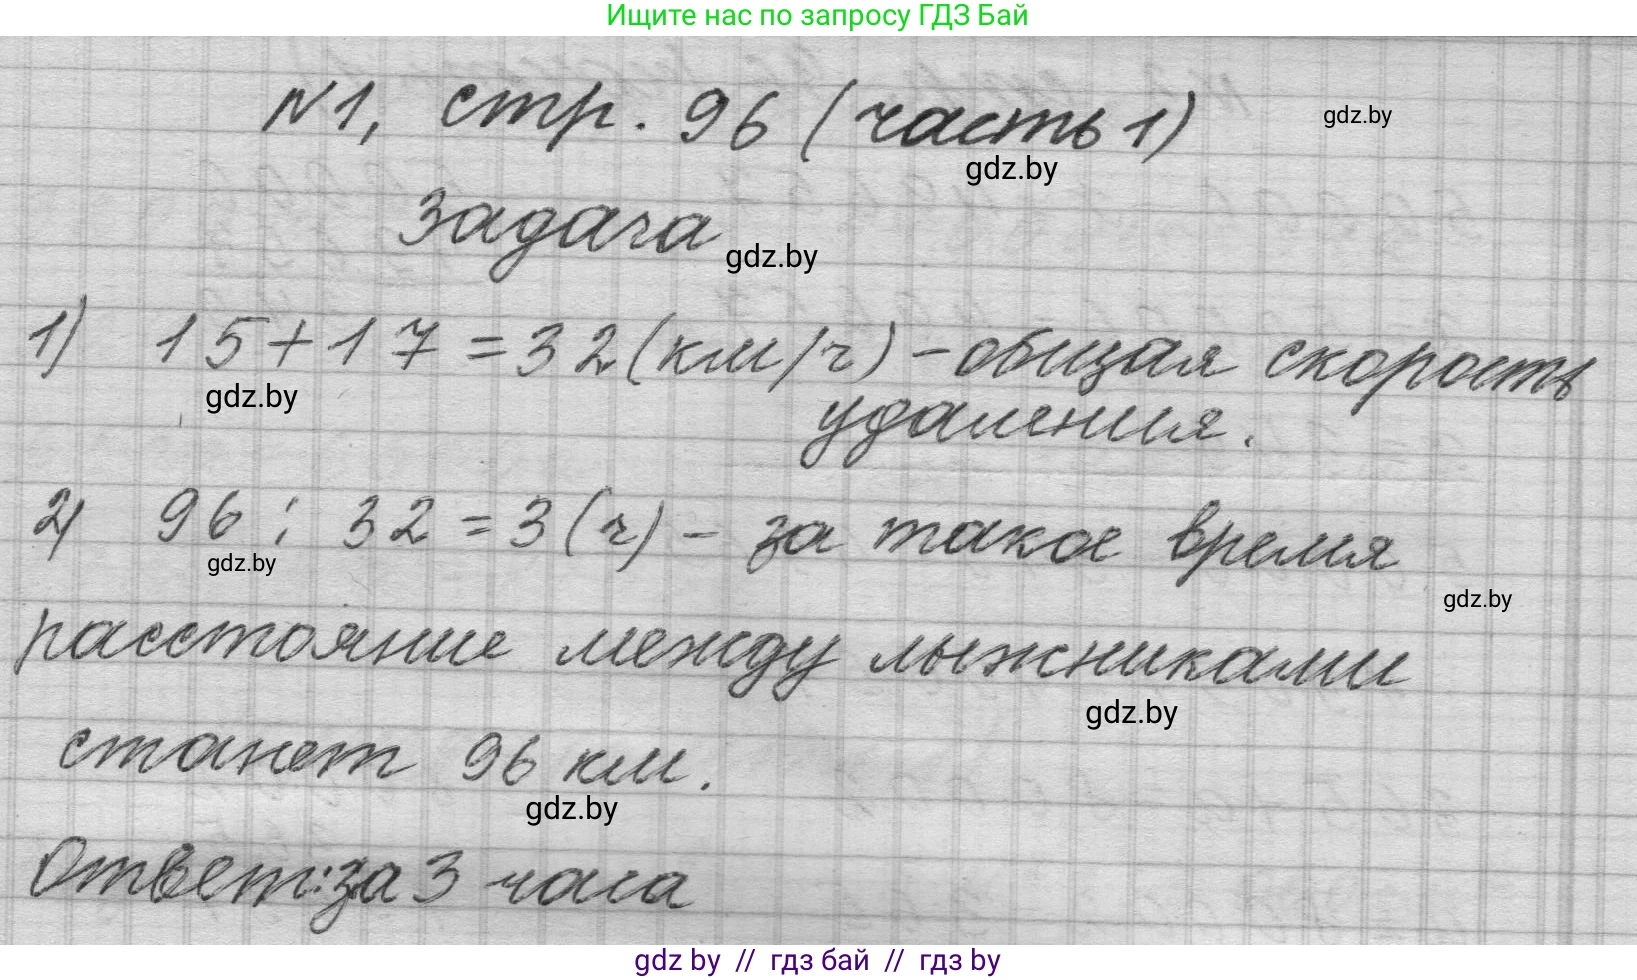 Ищите нас по запросу ГДЗ Бай
№1, стр. 96 (часть 1)
gdz.by
gdz.by
Задача
gdz.by
1) 15+17=32(км/ч) - общая скорость
gdz.by
удаления.
2) 96 : 32 = 3 (ч) - за такое время
gdz.by
gdz.by
расстояние между лыжниками
gdz.by
станет 96 км.
gdz.by
Ответ: за 3 часа
gdz by // гдз бай // гдз by